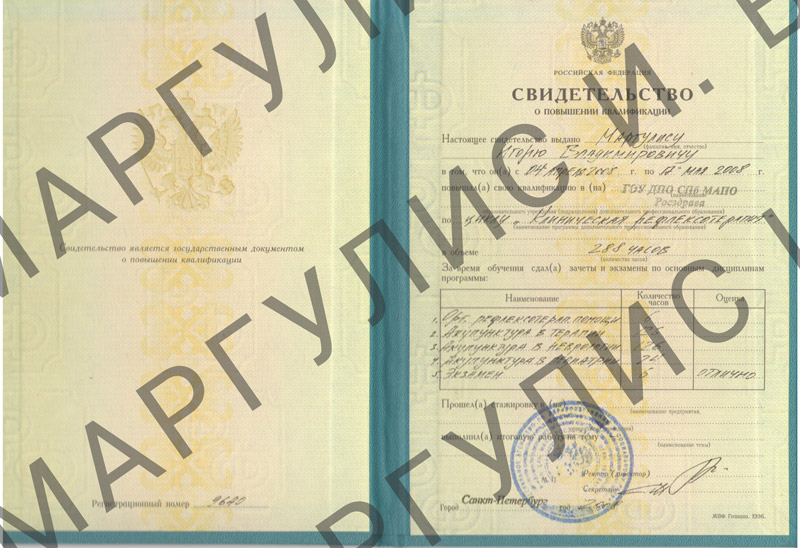 Свидетельство является государственным документом
о повышении квалификации
Регистрационный номер 9640
РОССИЙСКАЯ ФЕДЕРАЦИЯ
СВИДЕТЕЛЬСТВО
О ПОВЫШЕНИИ КВАЛИФИКАЦИИ
Настоящее свидетельство выдано Маргулису
(фамилия, имя, отчество)
Игорю Владимировичу
в том, что он(а) с 04 2008 г. по 12 мая 2008 г.
повысил(а) свою квалификацию в (на) ГОУ ДПО СПб МАПО
Росздрава
по циклу „Клиническая рефлексотерапия"
(наименование программы дополнительного профессионального образования)
в объеме 288 часов
(количество часов)
За время обучения сдал(а) зачеты и экзамены по основным дисциплинам
программы:
Наименование Количество часов Оценка
1. Орг. рефлексотерап. помощи 6
2. Акупунктура в терапии
3. Акупунктура в неврологии
4. Акупунктура в
5. Экзамен 6 отлично
Прошел(а) стажировку в (на)
(наименование предприятия,
выполнил(а) итоговую работу на тему
(наименование темы)
Ректор (директор)
Секретарь
Санкт-Петербург
Город год
МПФ Гознака. 1996.
МАРГУЛИС И. В.
МАРГУЛИС И.
МАРГУЛИС